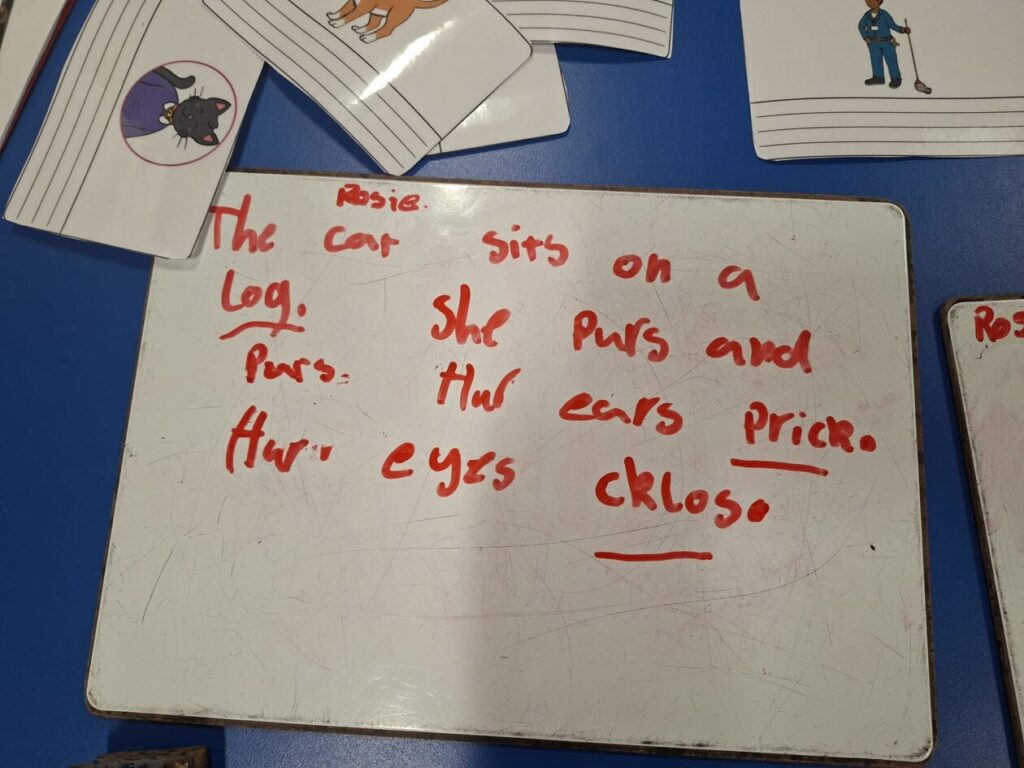 Rosie.
The cat sits on a
Log. She purs and
purs. Hur ears prick.
Hur eyes cklos.
Ros